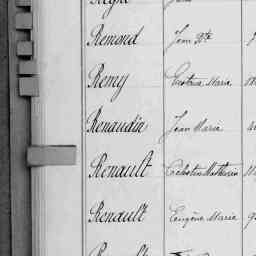 Remond Jean Bte
Remy Marie
Renaudin Jean Marie
Renault Célestin Mathurin
Renault Eugène Marie